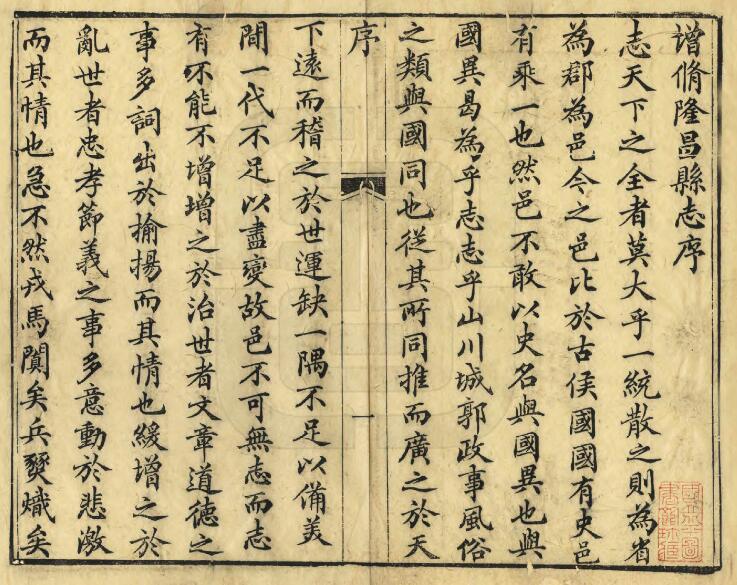 增脩隆昌縣志序
志天下之全者莫大乎一統散之則為省
為郡為邑今之邑比於古侯國國有史邑
有乘一也然邑不敢以史名與國異也與
國異曷為乎志志乎山川城郭政事風俗
之類與國同也從其所同推而廣之於天
序
一
下遠而稽之於世運缺一隅不足以備美
間一代不足以盡變故邑不可無志而志
有不能不增增之於治世者文章道德之
事多詞出於揄揚而其情也緩增之於
亂世者忠孝節義之事多意動於悲激
而其情也急不然戎馬閴矣兵燹熾矣